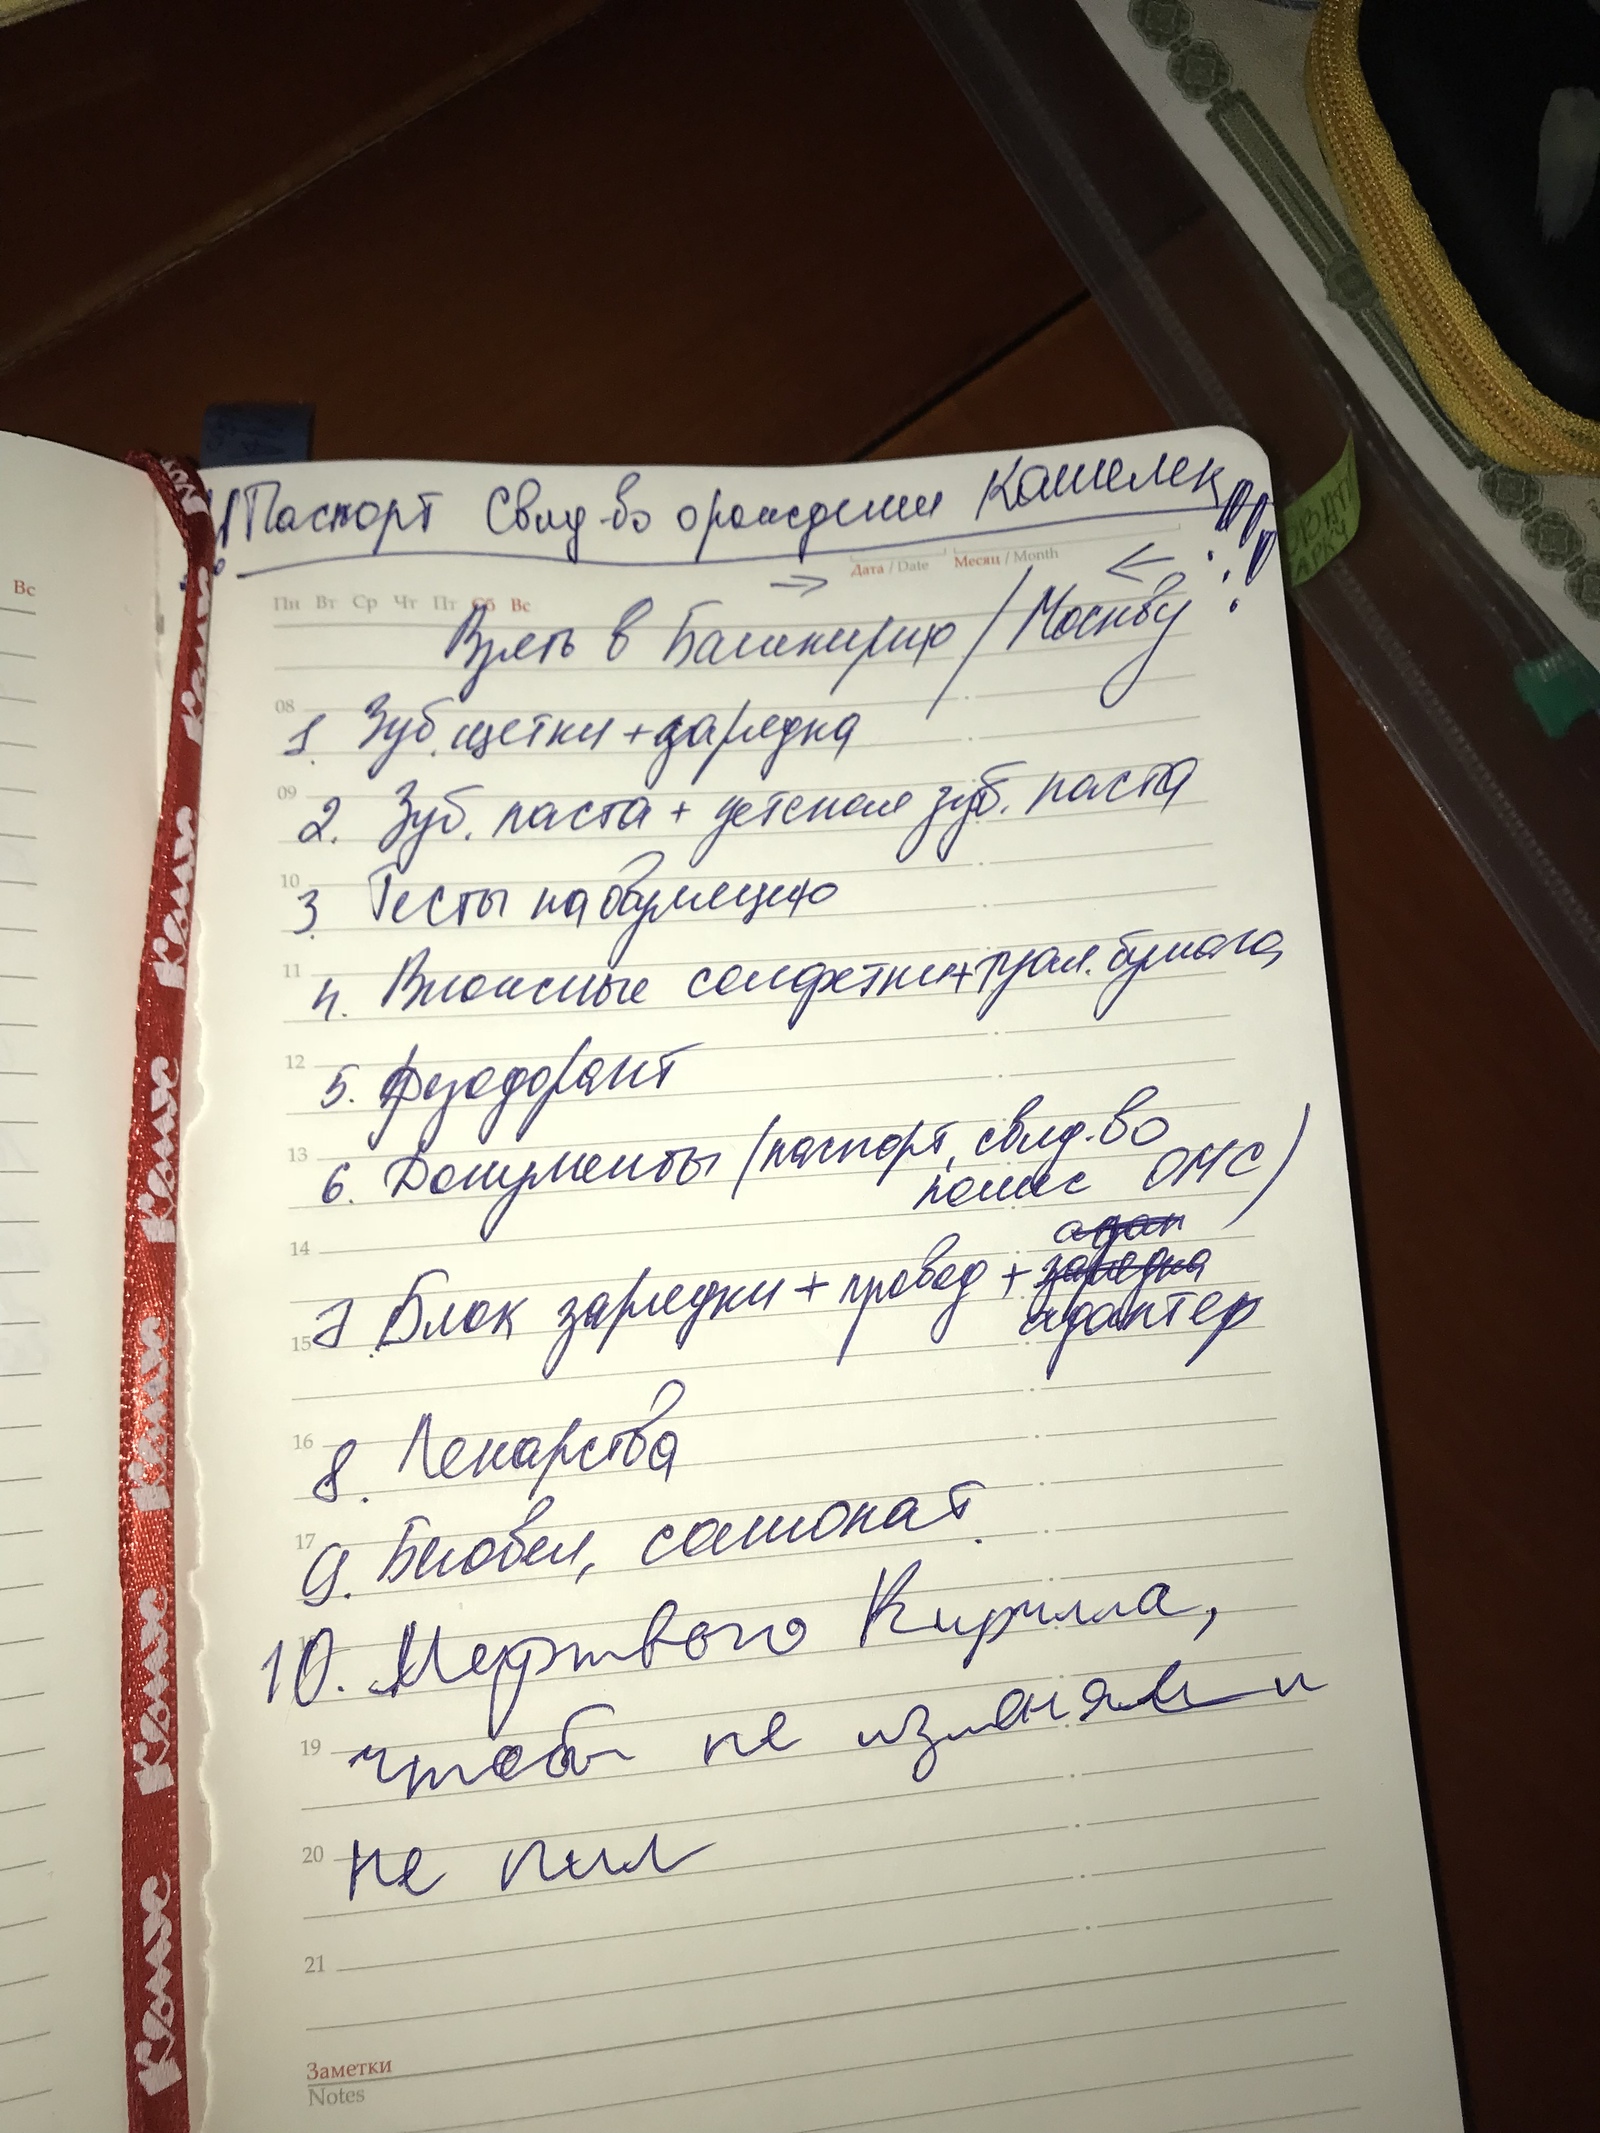 !!! Паспорт Свид-во о рождении Кошелек !!!
Дата / Date Месяц / Month
Пн Вт Ср Чт Пт Сб Вс
Взять в Башкирию / Москву
08
1. Зуб. щетки + зарядка
09
2. Зуб. паста + детская зуб. паста
10
3. Тесты на овуляцию
11
4. Влажные салфетки + туал. бумага
12
5. Дезодорант
13
6. Документы (паспорт, свид-во
полис ОМС)
14
адап
7. Блок зарядки + провод + зарядка
15
адаптер
16
8. Лекарства
17
9. Биовен, самокат.
10. Мертвого Кирилла,
19
чтоб не изменял и
20
не пил
21
Заметки
Notes
Вс
Комус
Комус
Комус
Комус
Комус
Комус
Комус